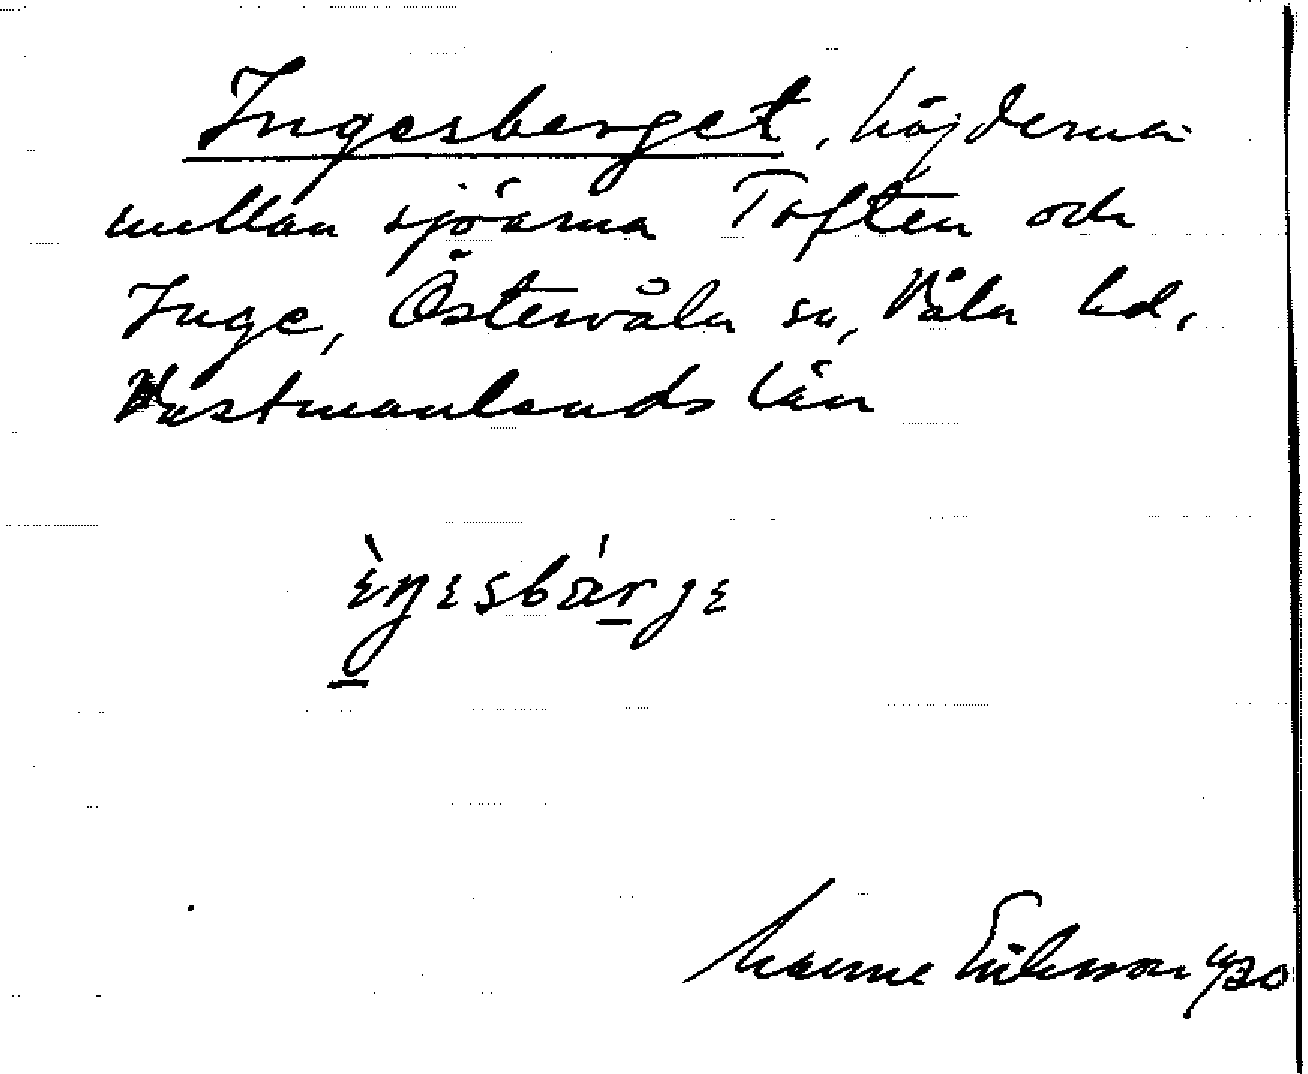 Ingesberget, höjderna
mellan sjöarna Toften och
Inge, Östervåla sn, Våla hd,
Västmanlands län
Manne Eriksson 4/30